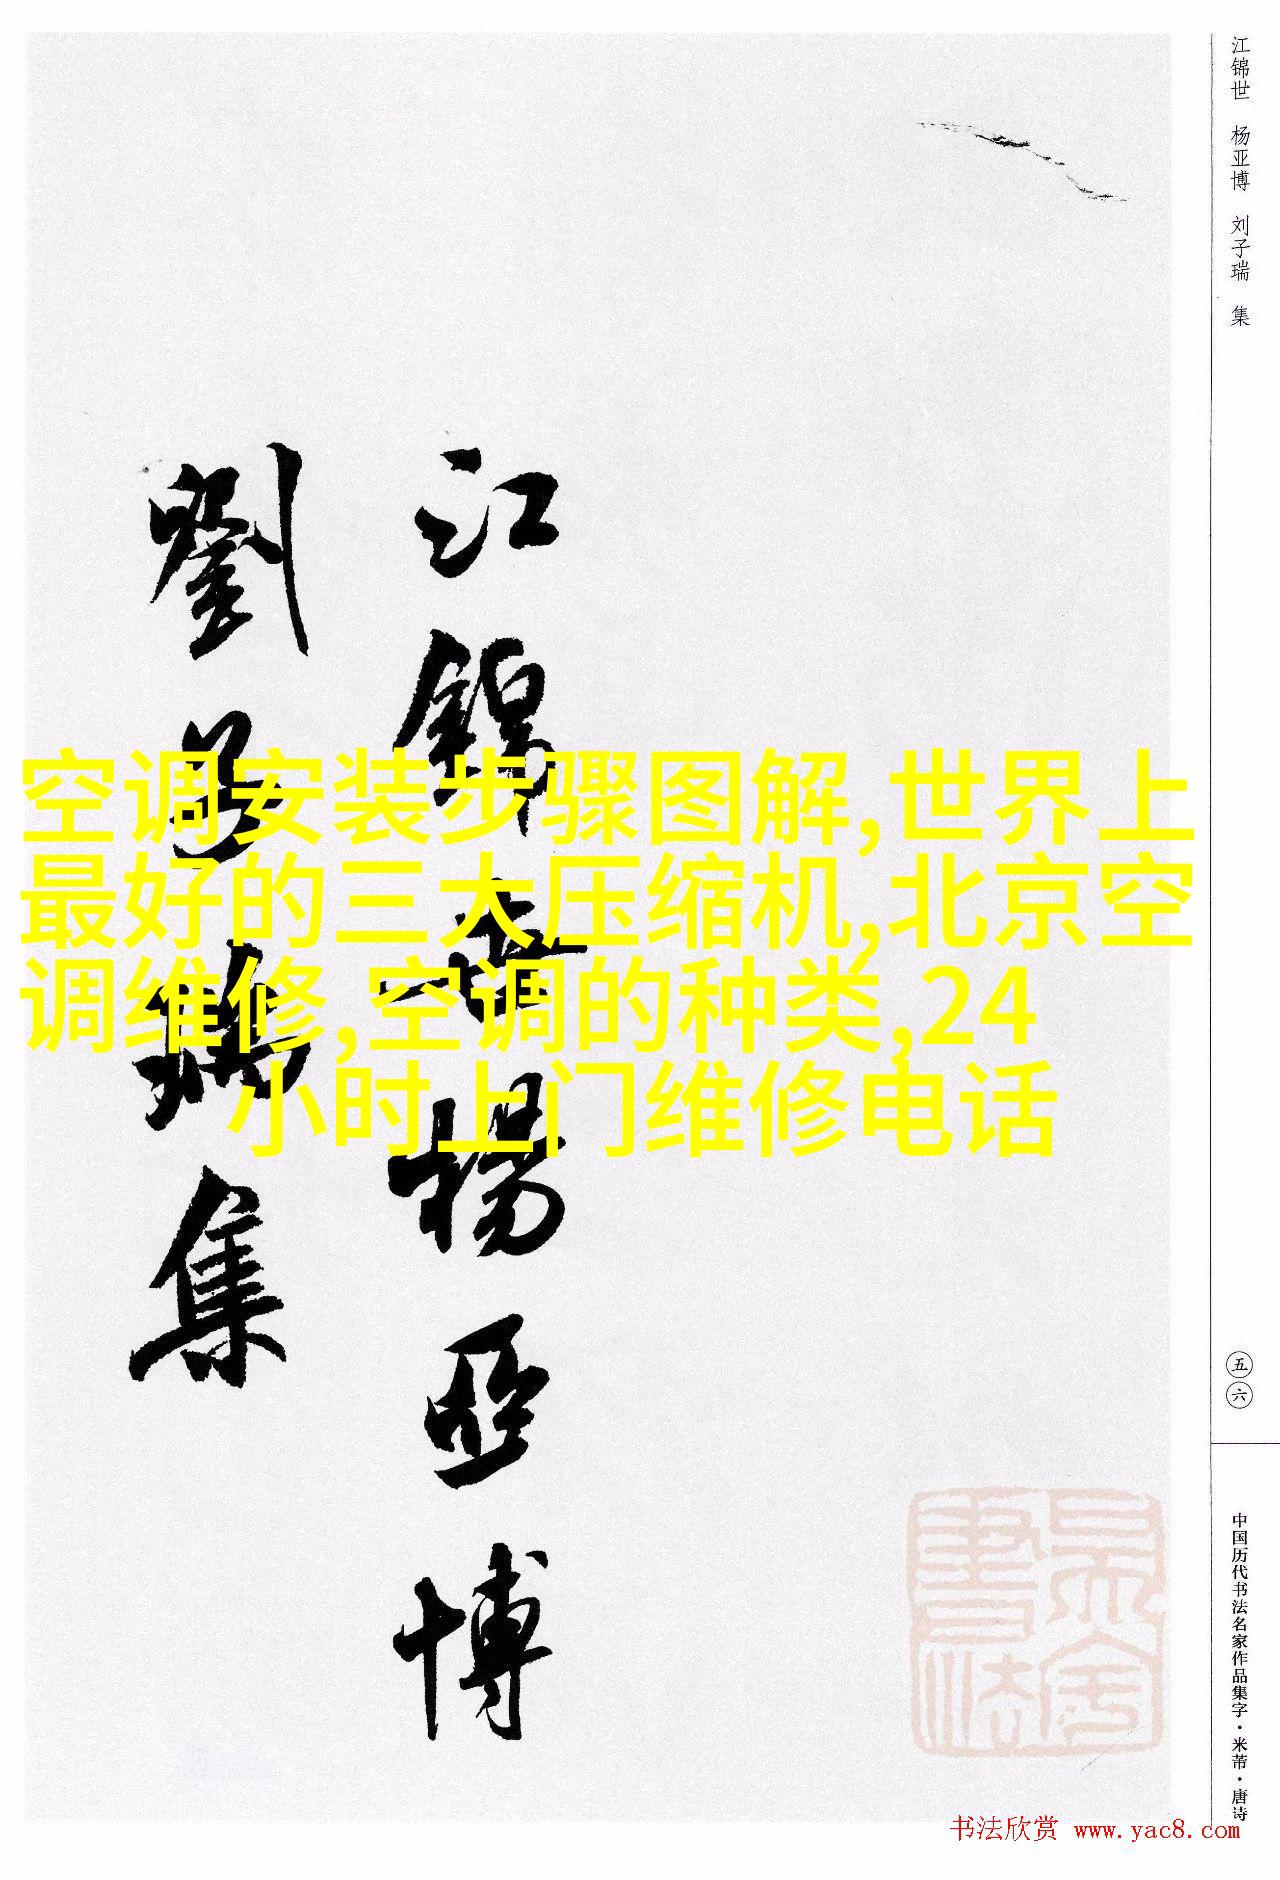 江锦世 杨亚博 刘子瑞 集
江錦世楊亞博
劉子瑞集
空调安装步骤图解,世界上
最好的三大压缩机,北京空
调维修,空调的种类,24
小时上门维修电话
五六
中国历代书法名家作品集字·米芾·唐诗
书法欣赏 www.yac8.com